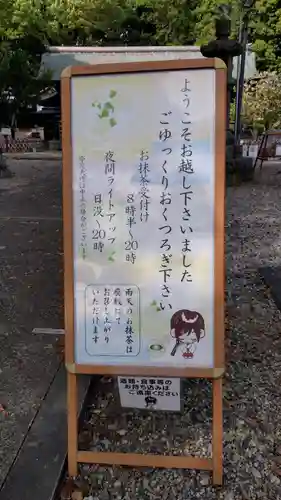 ようこそお越し下さいました
ごゆっくりおくつろぎ下さい
お抹茶受付け
8時半〜20時
夜間ライトアップ
日没〜20時
雨天のお抹茶は
座敷にて
お召し上がり
いただけます
お食事等の
持ち込みは
ご遠慮ください